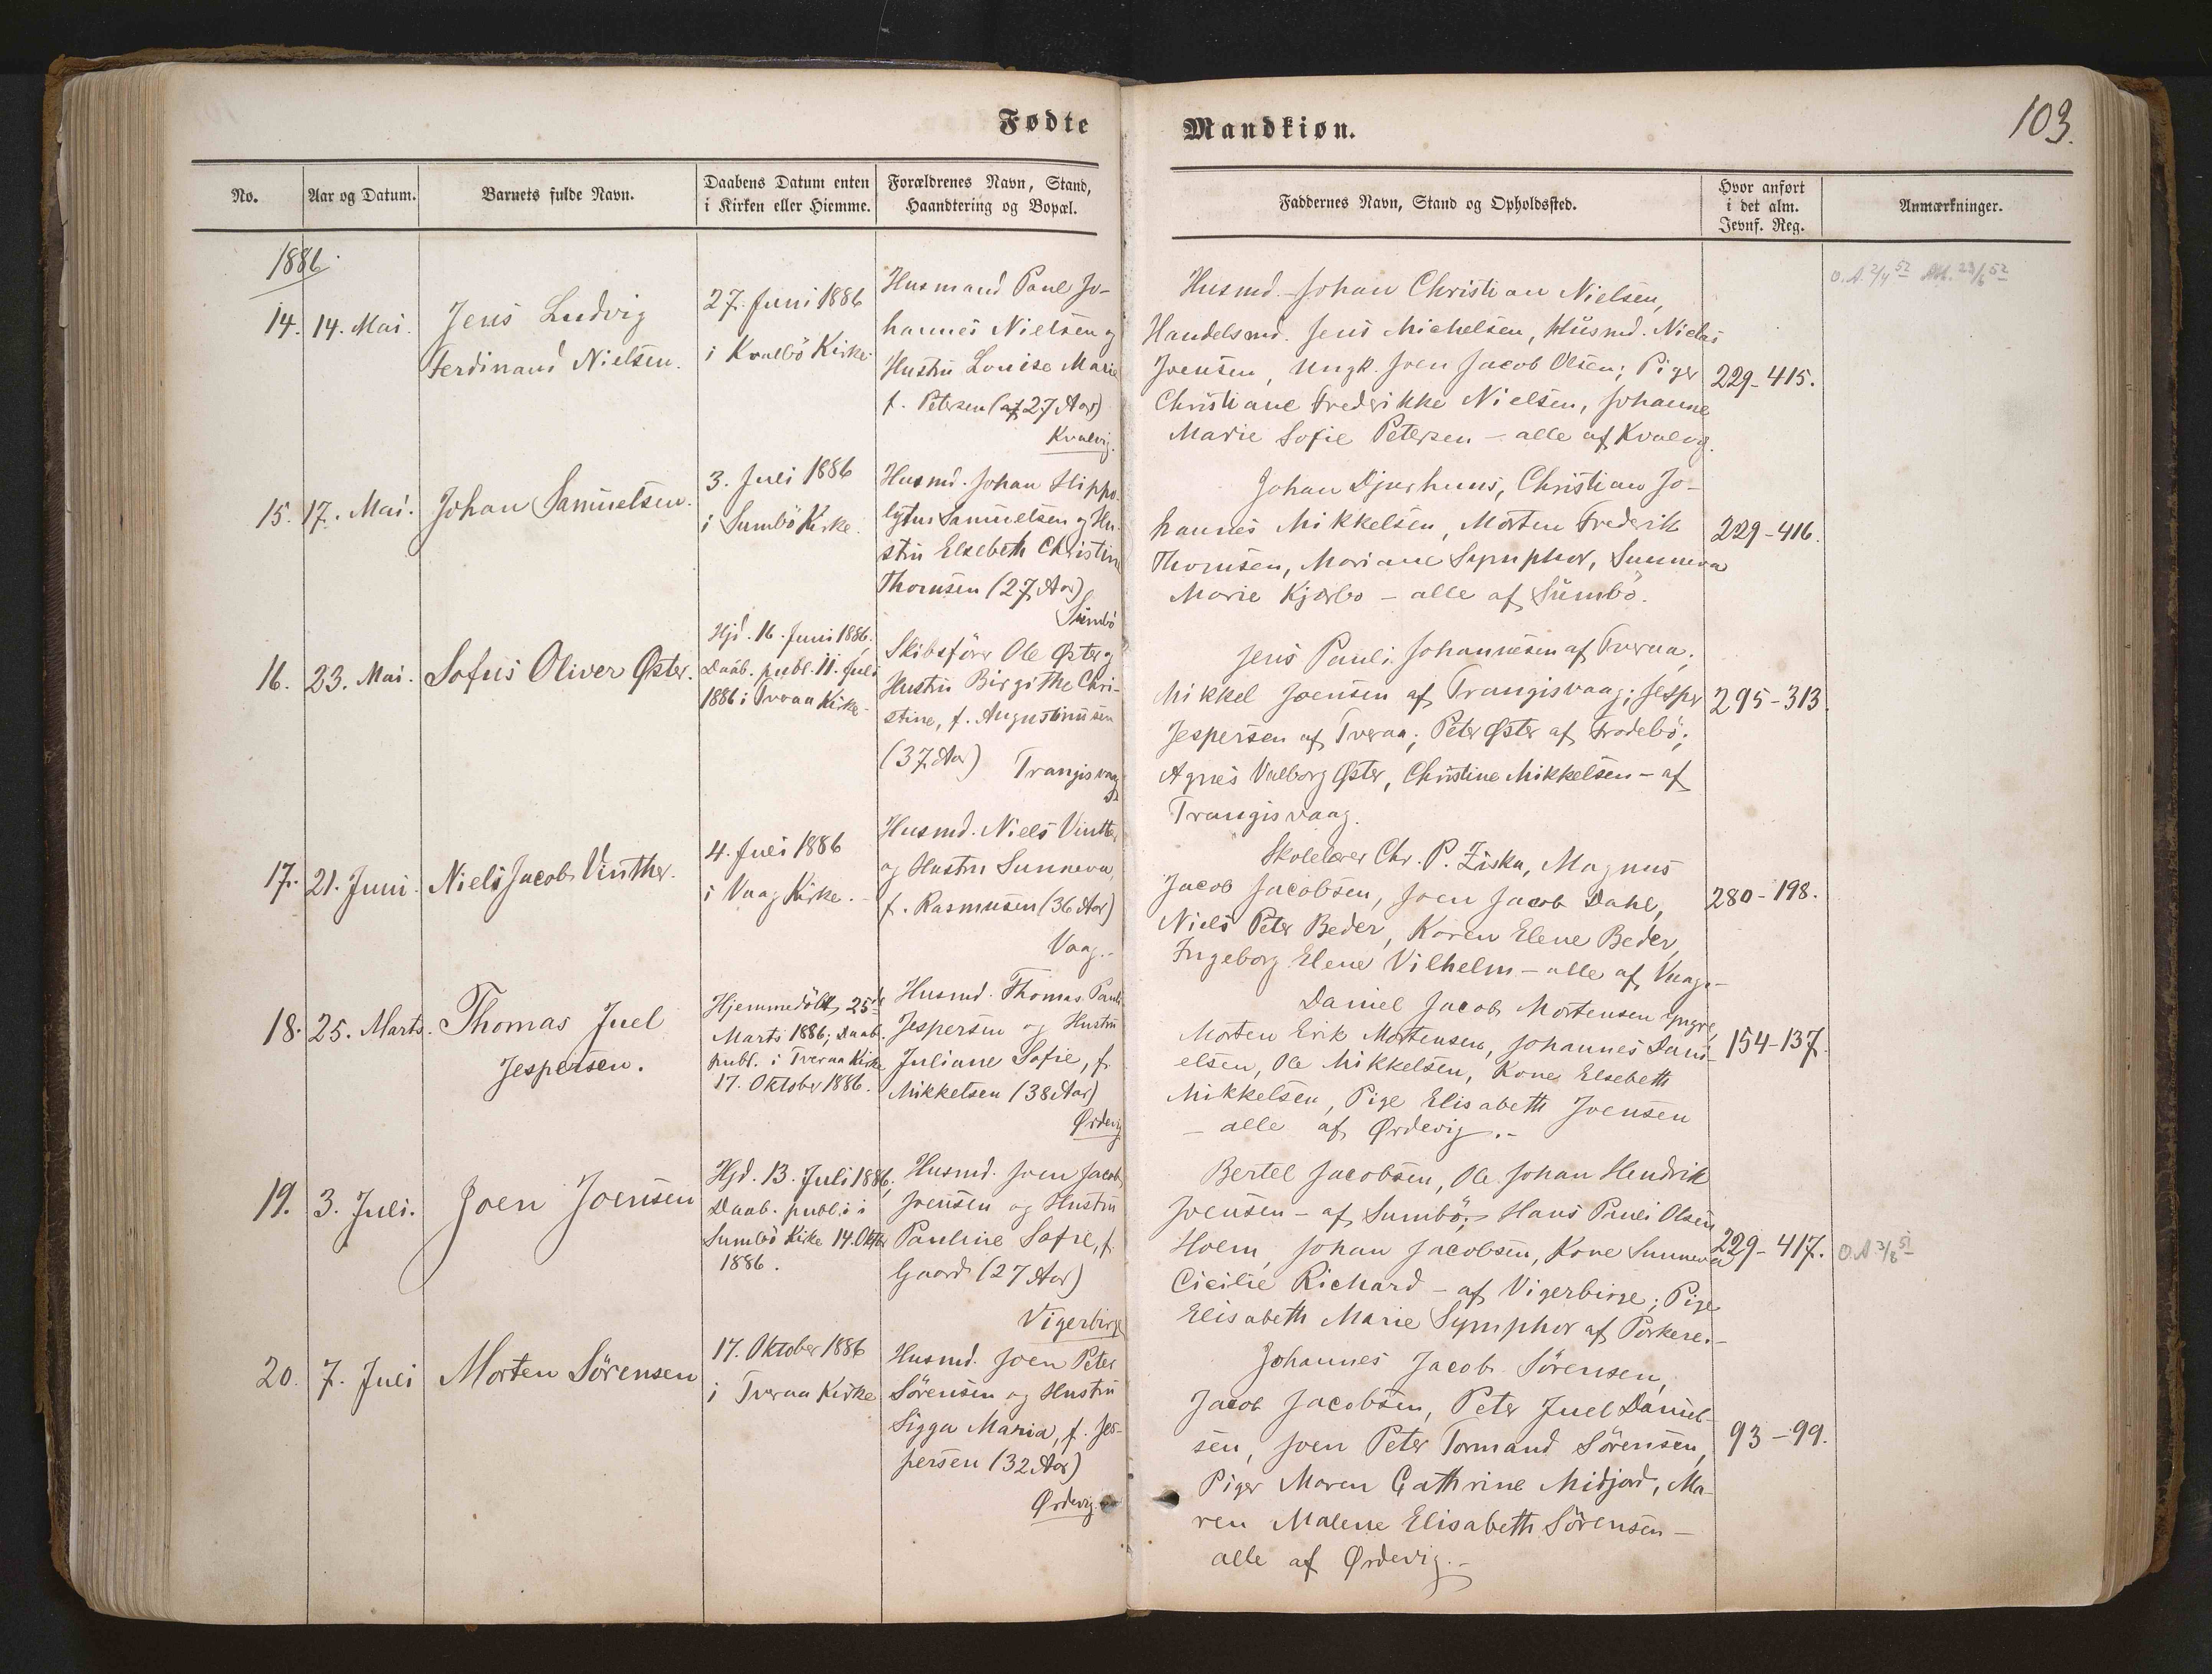 Fødte
Mandkiøn.
103.
No.
Aar og Datum.
Barnets fulde Navn.
Daabens Datum enten
i Kirken eller Hiemme.
Forældrenes Navn, Stand,
Haandtering og Bopæl.
Faddernes Navn, Stand og Opholdssted.
Hvor anført
i det alm.
Jevnf. Reg.
Anmærkninger.
1886.
14.
14. Mai.
Jens Ludvig
Ferdinand Nielsen.
27. Juni 1886
i Kvalbö Kirke
Husmand Poul Jo-
hannes Nielsen og
Hustru Louise Marie
f. Petersen (af 27 Aar)
Kvalvig.
Husmd. Johan Christian Nielsen,
Handelsmd. Jens Michelsen, Husmd. Niclas
Joensen, Ungk. Joen Jacob Olsen; Piger
Christiane Frederikke Nielsen, Johanne
Marie Sofie Petersen - alle af Kvalvig.
229-415.
O.A. 2/4 52 23/6 52
15.
17. Mai.
Johan Samuelsen.
3. Juli 1886
i Sumbö Kirke.
Husmd. Johan Hippo-
lytus Samuelsen og Hu-
stru Elsebeth Christine
Thomsen (27 Aar)
Sumbö
Johan Djurhuus, Christian Jo-
hannes Mikkelsen, Morten Frederik
Thomsen, Mariane Symphor, Sunneva
Marie Kjærbo - alle af Sumbö.
229-416.
16.
23. Mai.
Sofus Oliver Øster.
Hjd. 16. Juni 1886,
Daab. publ. 11. Juli
1886 i Tveraa Kirke-
Skibsförer Ole Øster og
Hustru Birgithe Chri-
stine, f. Augustinusen
(37 Aar) Trangisvaag
Jens Pauli Johannesen af Tveraa;
Mikkel Joensen af Trangisvaag; Jesper
Jespersen af Tveraa; Peter Øster af Frodebö;
Agnes Valborg Øster, Christine Mikkelsen - af
Trangisvaag.
295-313.
17.
21. Juni.
Niels Jacob Vinther.
4. Juli 1886
i Vaag Kirke.-
Husmd. Niels Vinther
og Hustru Sunneva,
f. Rasmusen (36 Aar)
Vaag.-
Skolelærer Chr. P. Ziska, Magnus
Jacob Jacobsen, Joen Jacob Dahl,
Niels Peter Beder, Karen Elene Beder,
Ingeborg Elene Vilhelm - alle af Vaag.-
280-198.
18.
25. Marts.
Thomas Juel
Jespersen.
Hjemmedöbt 25de
Marts 1886; Daab.
publ. i Tveraa Kirke
17. Oktober 1886.
Husmd. Thomas Pauli
Jespersen og Hustru
Juliane Sofie, f.
Mikkelsen (38 Aar)
Ørdevig
Daniel Jacob Mortensen yngre,
Morten Erik Mortensen, Johannes Dani-
elsen, Ole Mikkelsen, Kone Elsebeth
Mikkelsen, Pige Elisabeth Joensen
- alle af Ørdevig.-
154-137.
19.
3. Juli.
Joen Joensen
Hjd. 13. Juli 1886;
Daab. publ. i
Sumbö Kirke 14. Oktbr
1886.
Husmd. Joen Jacob
Joensen og Hustru
Pauline Sofie, f.
Gaard (27 Aar)
Vigerbirge
Bertel Jacobsen, Ole Johan Hendrik
Joensen - af Sumbö; Hans Pauli Olsen
Holm, Johan Jacobsen, Kone Sunneva
Cicilie Richard - af Vigerbirge; Pige
Elisabeth Marie Symphor af Porkere.-
229-417.
O.A. 3/8 51
20.
7. Juli
Morten Sörensen
17. Oktober 1886
i Tveraa Kirke
Husmd. Joen Peter
Sörensen og Hustru
Sigga Maria, f. Jes-
persen (32 Aar)
Ørdevig.
Johannes Jacob Sörensen,
Jacob Jacobsen, Peter Juel Daniel-
sen, Joen Peter Tormand Sörensen,
Piger Maren Cathrine Midjord, Ma-
ren Malene Elisabeth Sörensen -
alle af Ørdevig.-
93-99.